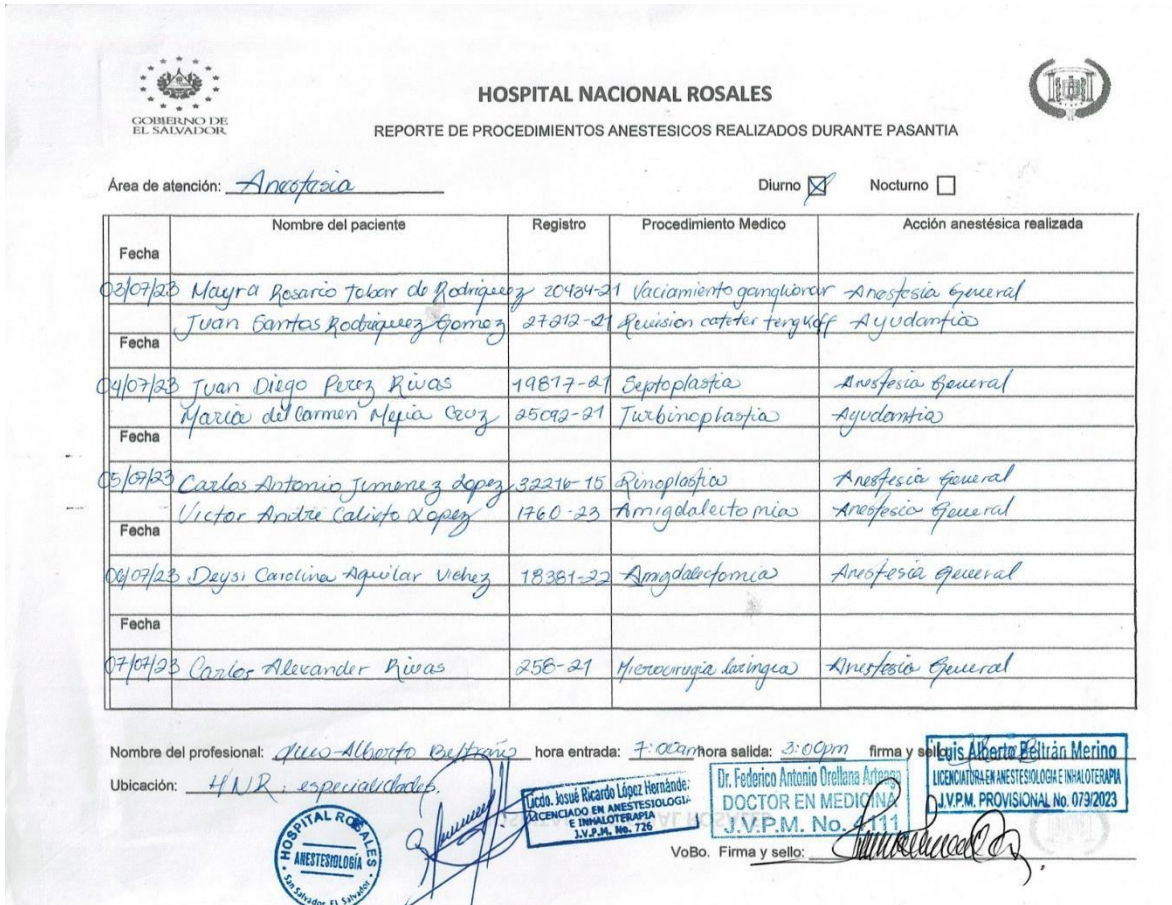 GOBIERNO DE
EL SALVADOR
HOSPITAL NACIONAL ROSALES
REPORTE DE PROCEDIMIENTOS ANESTESICOS REALIZADOS DURANTE PASANTIA
Área de atención: Anestesia Diurno Nocturno
Nombre del paciente Registro Procedimiento Medico Acción anestésica realizada
Fecha
03/07/23 Mayra Rosario Tobar de Rodriguez 20434-21 Vaciamiento ganglionar Anestesia General
Juan Santos Rodriguez Gomez 27212-21 Revision cateter tengkoff Ayudantia
Fecha
04/07/23 Juan Diego Perez Rivas 19817-21 Septoplastia Anestesia General
Maria del Carmen Mejia Cruz 25092-21 Turbinoplastia Ayudantia
Fecha
05/07/23 Carlos Antonio Jimenez Lopez 32216-15 Rinoplastia Anestesia General
Victor Andre Calixto Lopez 1760-23 Amigdalectomia Anestesia General
Fecha
06/07/23 Deysi Carolina Aguilar Vichez 18381-22 Amigdalectomia Anestesia General
Fecha
07/07/23 Carlos Alexander Rivas 258-21 Microcirugia laringea Anestesia General
Nombre del profesional: Luis Alberto Beltrán hora entrada: 7:00am hora salida: 3:00pm firma y sello:
Luis Alberto Beltrán Merino
LICENCIATURA EN ANESTESIOLOGIA E INHALOTERAPIA
J.V.P.M. PROVISIONAL No. 079/2023
Ubicación: HNR, especialidades.
Licdo. Josué Ricardo López Hernández
LICENCIADO EN ANESTESIOLOGIA
E INHALOTERAPIA
J.V.P.M. No. 726
Dr. Federico Antonio Orellana Arteaga
DOCTOR EN MEDICINA
J.V.P.M. No. 4111
HOSPITAL ROSALES
ANESTESIOLOGÍA
San Salvador, El Salvador
VoBo. Firma y sello: